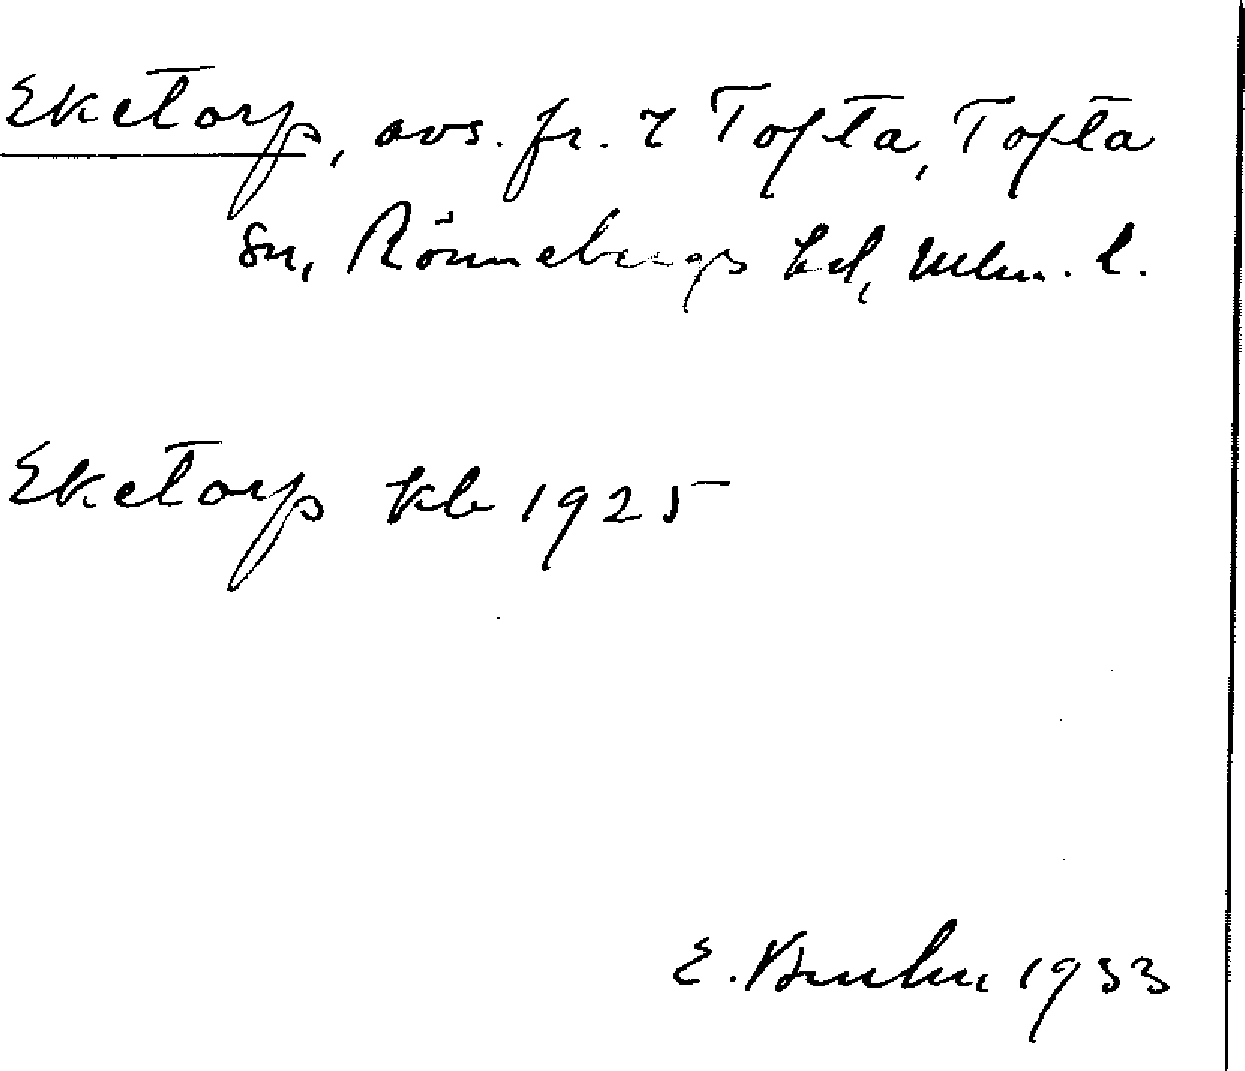 Eketorp, avs. fr. 7 Tofta, Tofta
sn, Rönnebergs hd, Mlm. l.
Eketorp kb 1925
E. 1933